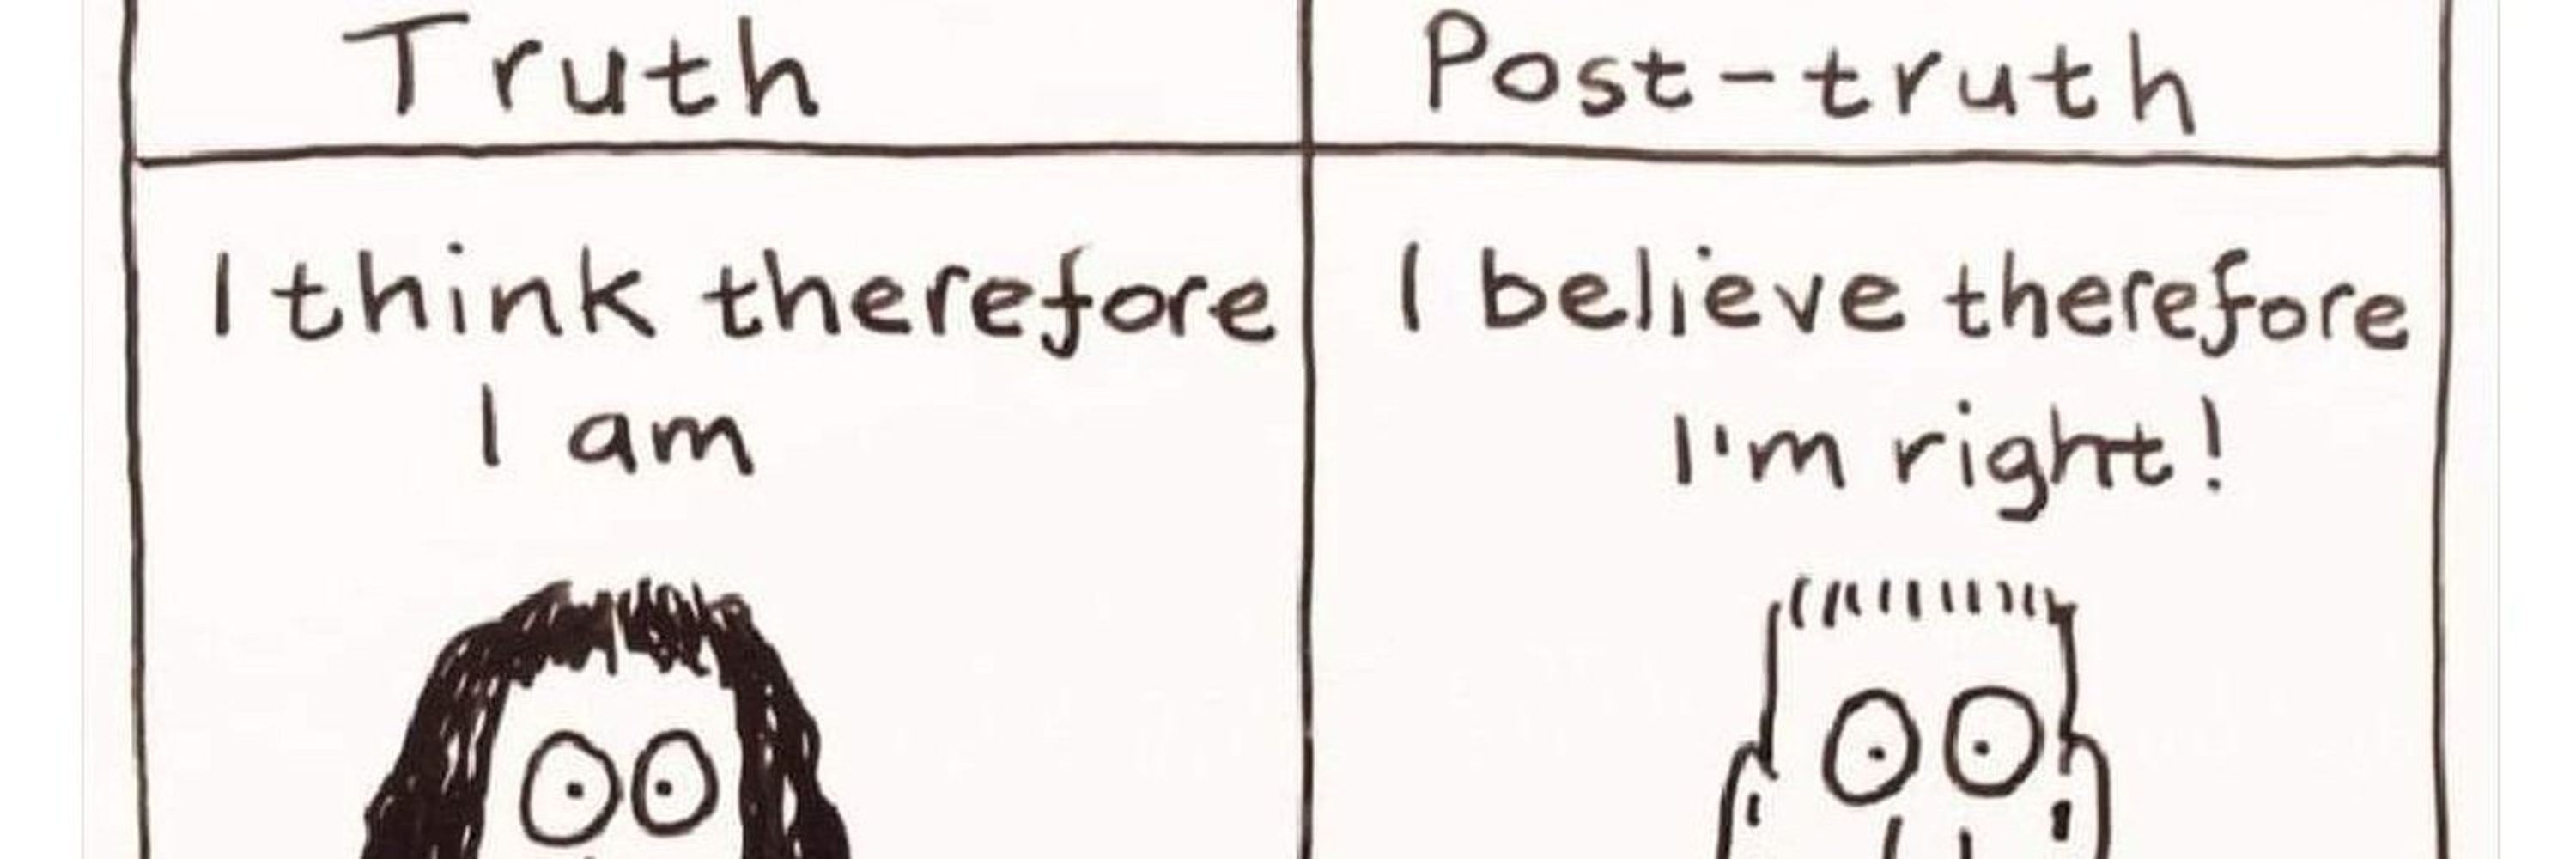 Truth
Post-truth
I think therefore
I am
I believe therefore
I'm right!